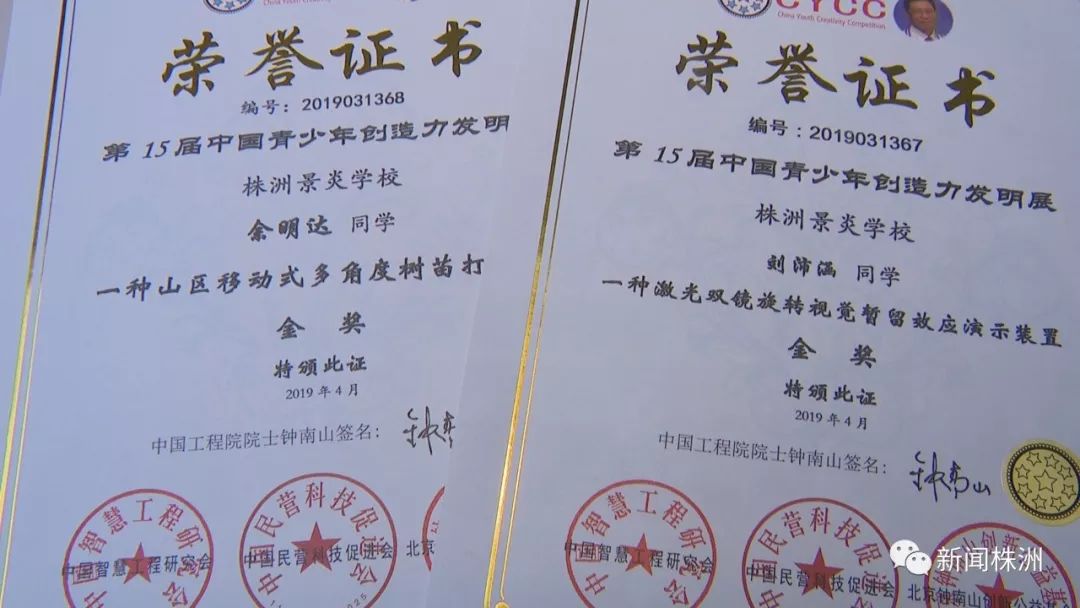 China Youth Creativity Competition
荣誉证书
编号：2019031368
第15届中国青少年创造力发明
株洲景炎学校
余明达 同学
一种山区移动式多角度树苗打
金 奖
特颁此证
2019年4月
中国工程院院士钟南山签名：
中国智慧工程研究会
中国民营科技促进会 北京
CYCC
China Youth Creativity Competition
荣誉证书
编号：2019031367
第15届中国青少年创造力发明展
株洲景炎学校
刘沛涵 同学
一种激光双镜旋转视觉暂留效应演示装置
金 奖
特颁此证
2019年4月
中国工程院院士钟南山签名：
钟南山
中国智慧工程研究会
中国民营科技促进会
北京钟南山创新公益
新闻株洲